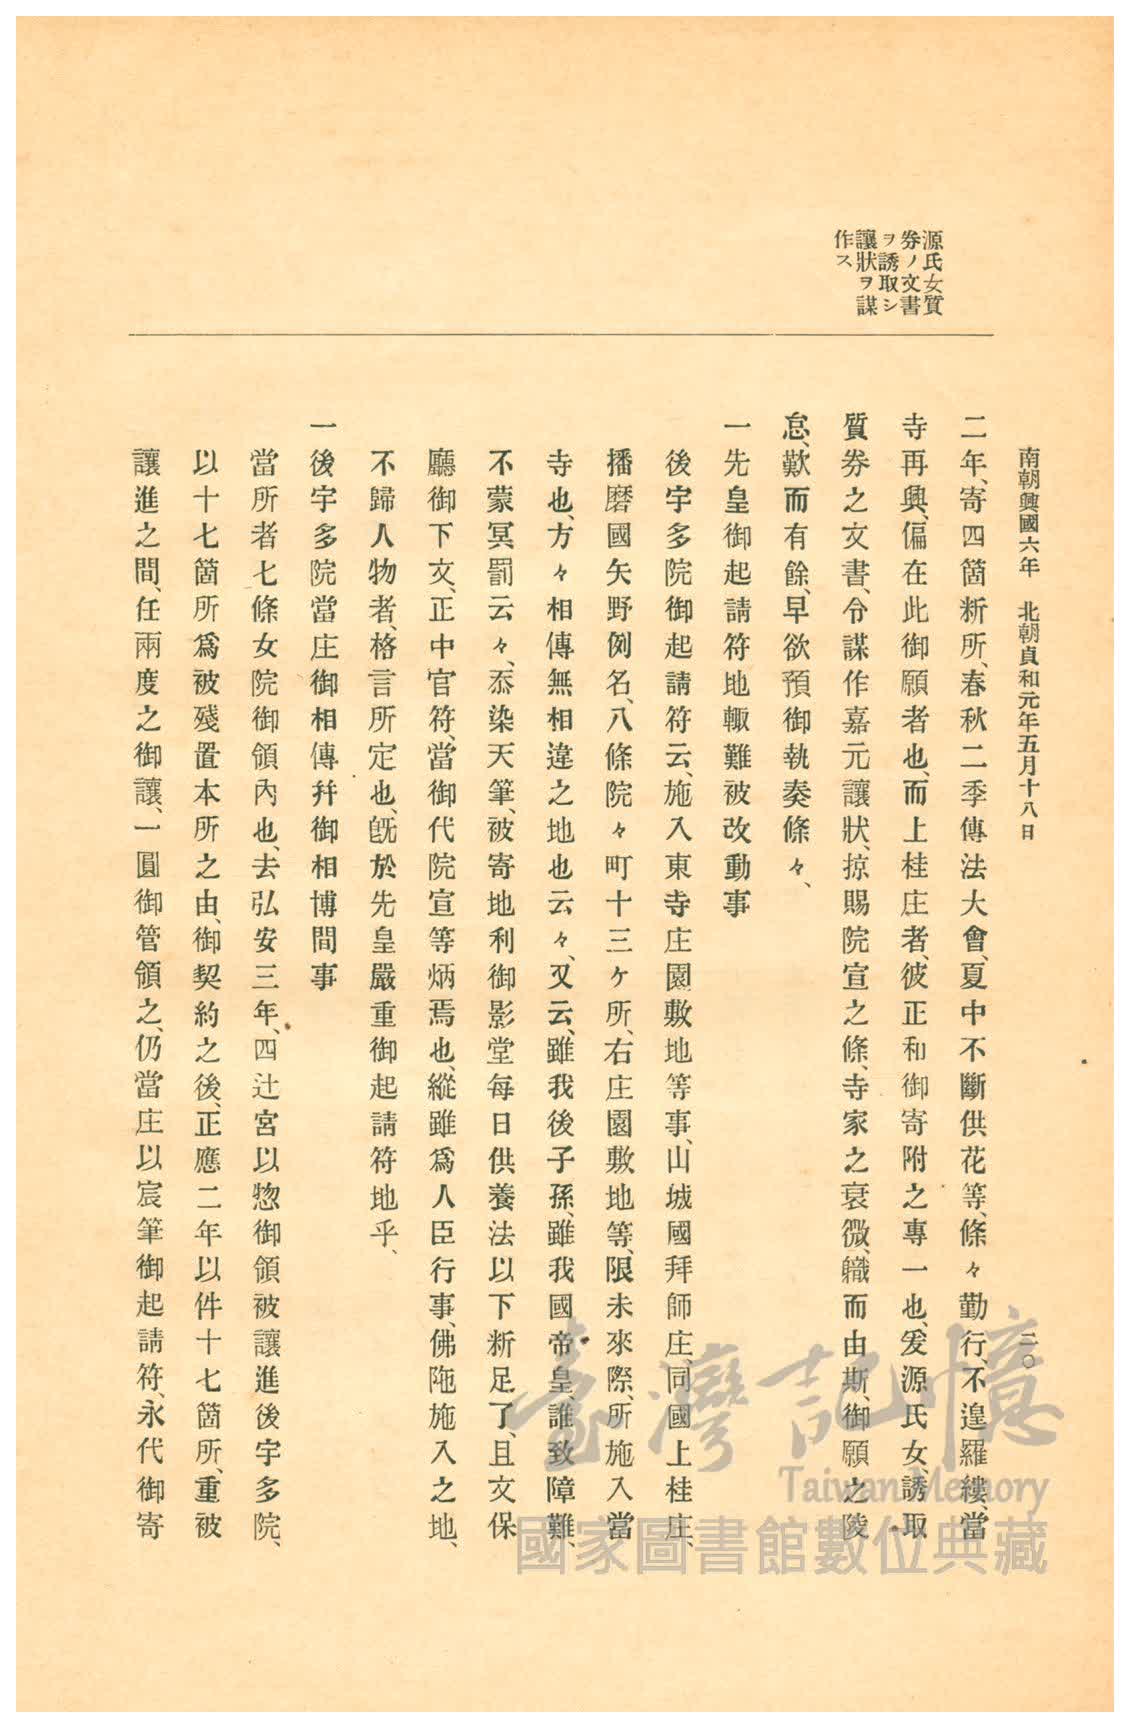 南朝興國六年　北朝貞和元年五月十八日
二〇
源氏女質
券ノ文書
ヲ誘取シ
讓狀ヲ謀
作ス
二年、寄四箇新所、春秋二季傳法大會、夏中不斷供花等、條々勤行、不遑羅縷、當
寺再興、偏在此御願者也、而上桂庄者、彼正和御寄附之專一也、爰源氏女、誘取
質券之文書、令謀作嘉元讓狀、掠賜院宣之條、寺家之衰微、職而由斯、御願之陵
怠、歎而有餘、早欲預御執奏條々、
一先皇御起請符地輙難被改動事
後宇多院御起請符云、施入東寺庄園敷地等事、山城國拜師庄、同國上桂庄、
播磨國矢野例名、八條院々町十三ケ所、右庄園敷地等、限未來際、所施入當
寺也、方々相傳無相違之地也云々、又云、雖我後子孫、雖我國帝皇、誰致障難、
不蒙冥罰云々、忝染天筆、被寄地利御影堂每日供養法以下新足了、且文保
廳御下文、正中官符、當御代院宣等炳焉也、縱雖爲人臣行事、佛陁施入之地、
不歸人物者、格言所定也、旣於先皇嚴重御起請符地乎、
一後宇多院當庄御相傳幷御相博間事
當所者七條女院御領內也、去弘安三年、四辻宮以惣御領被讓進後宇多院、
以十七箇所爲被殘置本所之由、御契約之後、正應二年以件十七箇所、重被
讓進之間、任兩度之御讓、一圓御管領之、仍當庄以宸筆御起請符、永代御寄
臺灣記憶
Taiwan Memory
國家圖書館數位典藏